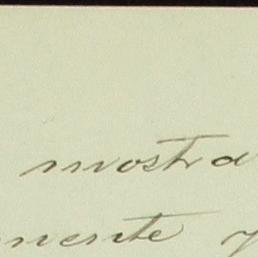 mostra
nente y